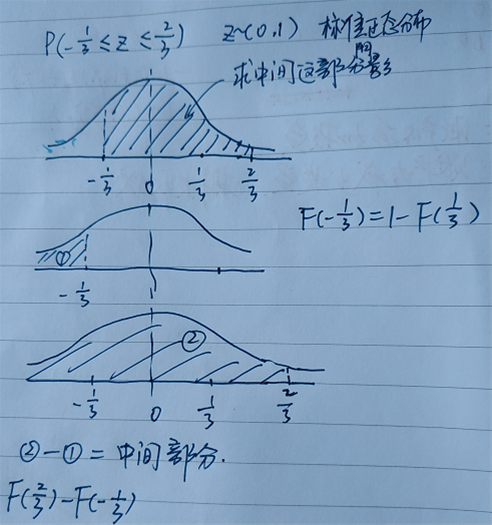 P(-1/3 ≤ z ≤ 2/3) z~(0,1) 标准正态分布
求中间这部分的
-1/3 0 1/3 2/3
F(-1/3)=1-F(1/3)
①
-1/3
②
-1/3 0 1/3 2/3
②-①=中间部分.
F(2/3)-F(-1/3)